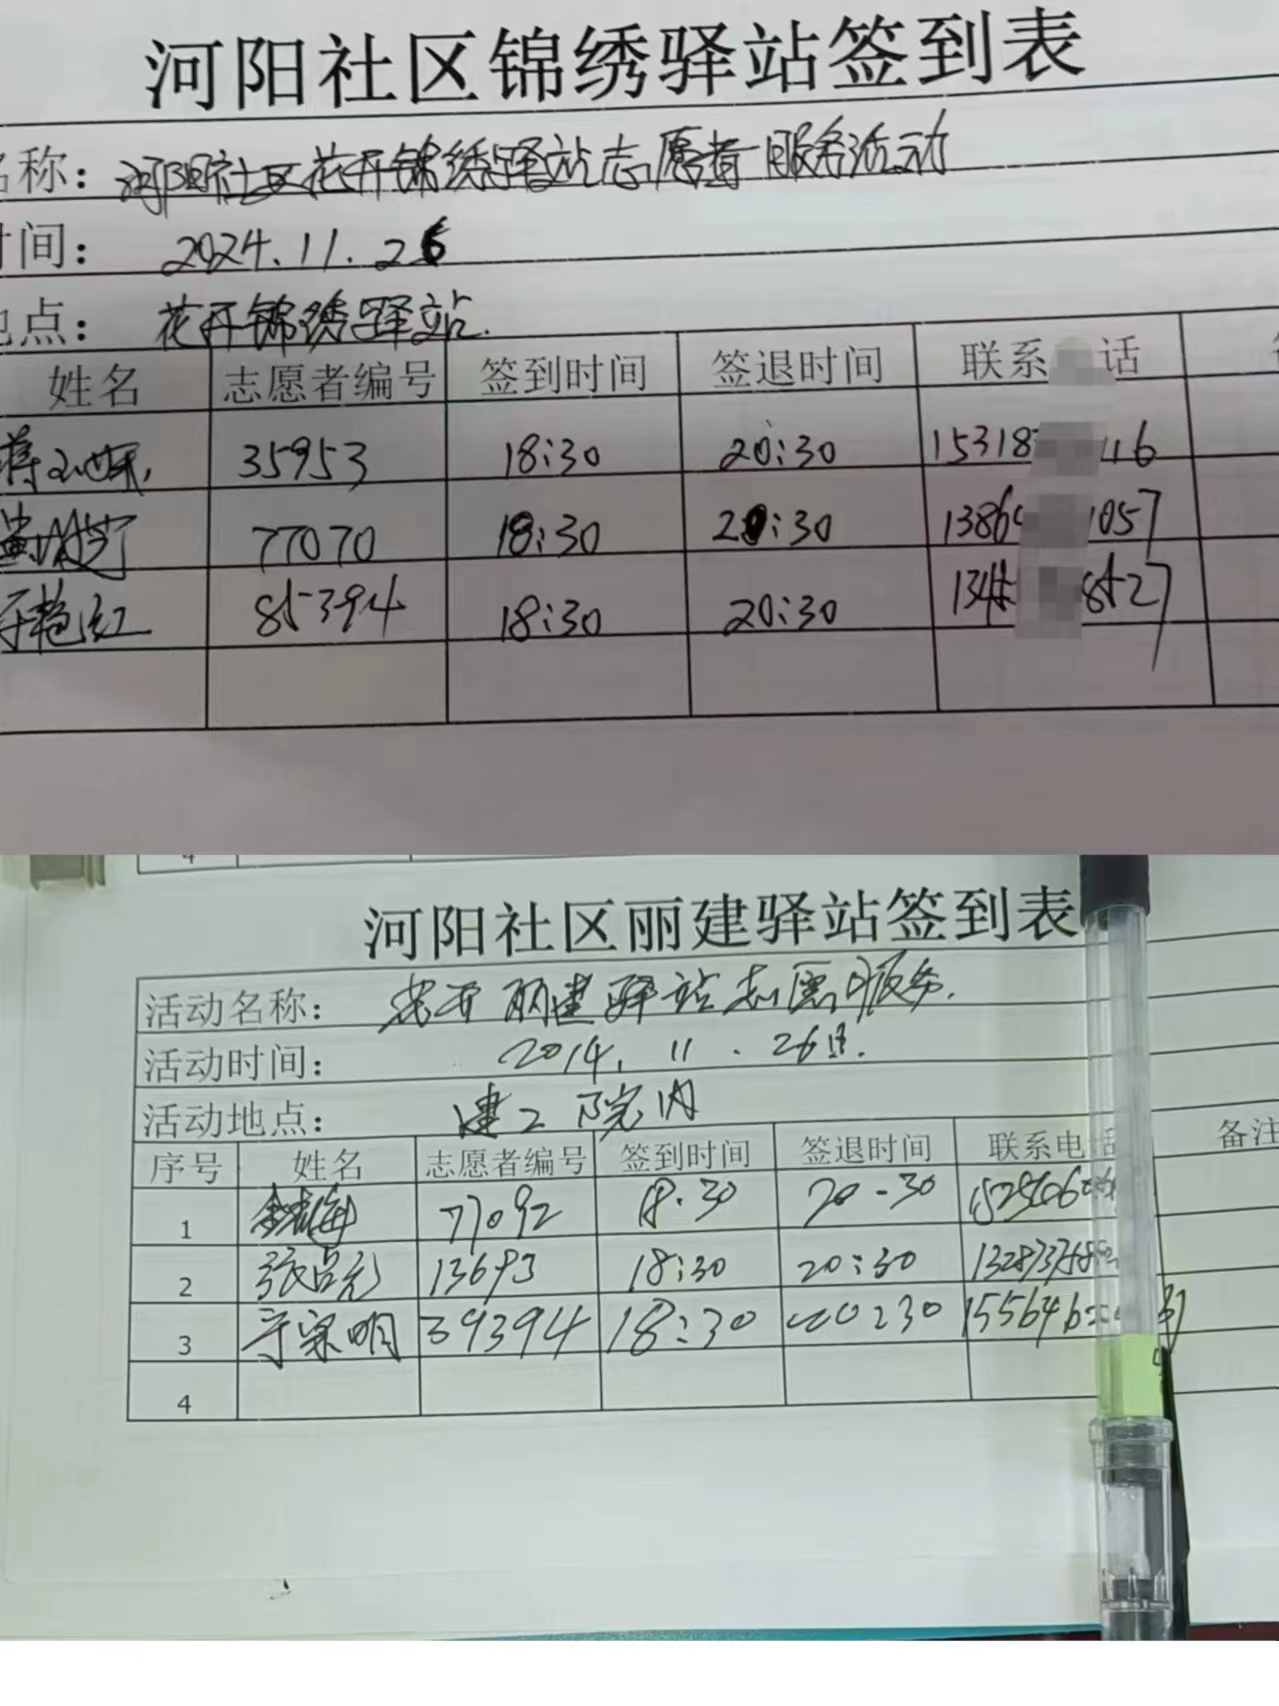 河阳社区锦绣驿站签到表
名称： 河阳社区花开锦绣驿站志愿者服务活动
时间： 2024.11.26
地点： 花开锦绣驿站.
姓名 志愿者编号 签到时间 签退时间 联系 话
35953 18:30 20:30 15318 116
77070 18:30 20:30 1386 1057
于艳红 85394 18:30 20:30 134 8527
4
河阳社区丽建驿站签到表
活动名称： 花开丽建驿站志愿服务.
活动时间： 2014. 11. 26日.
活动地点： 建工院内
序号 姓名 志愿者编号 签到时间 签退时间 联系电话 备注
1 77092 18:30 20-30
2 张吕元 13693 18:30 20:30
3 于宗明 39394 18:30 20:30
4